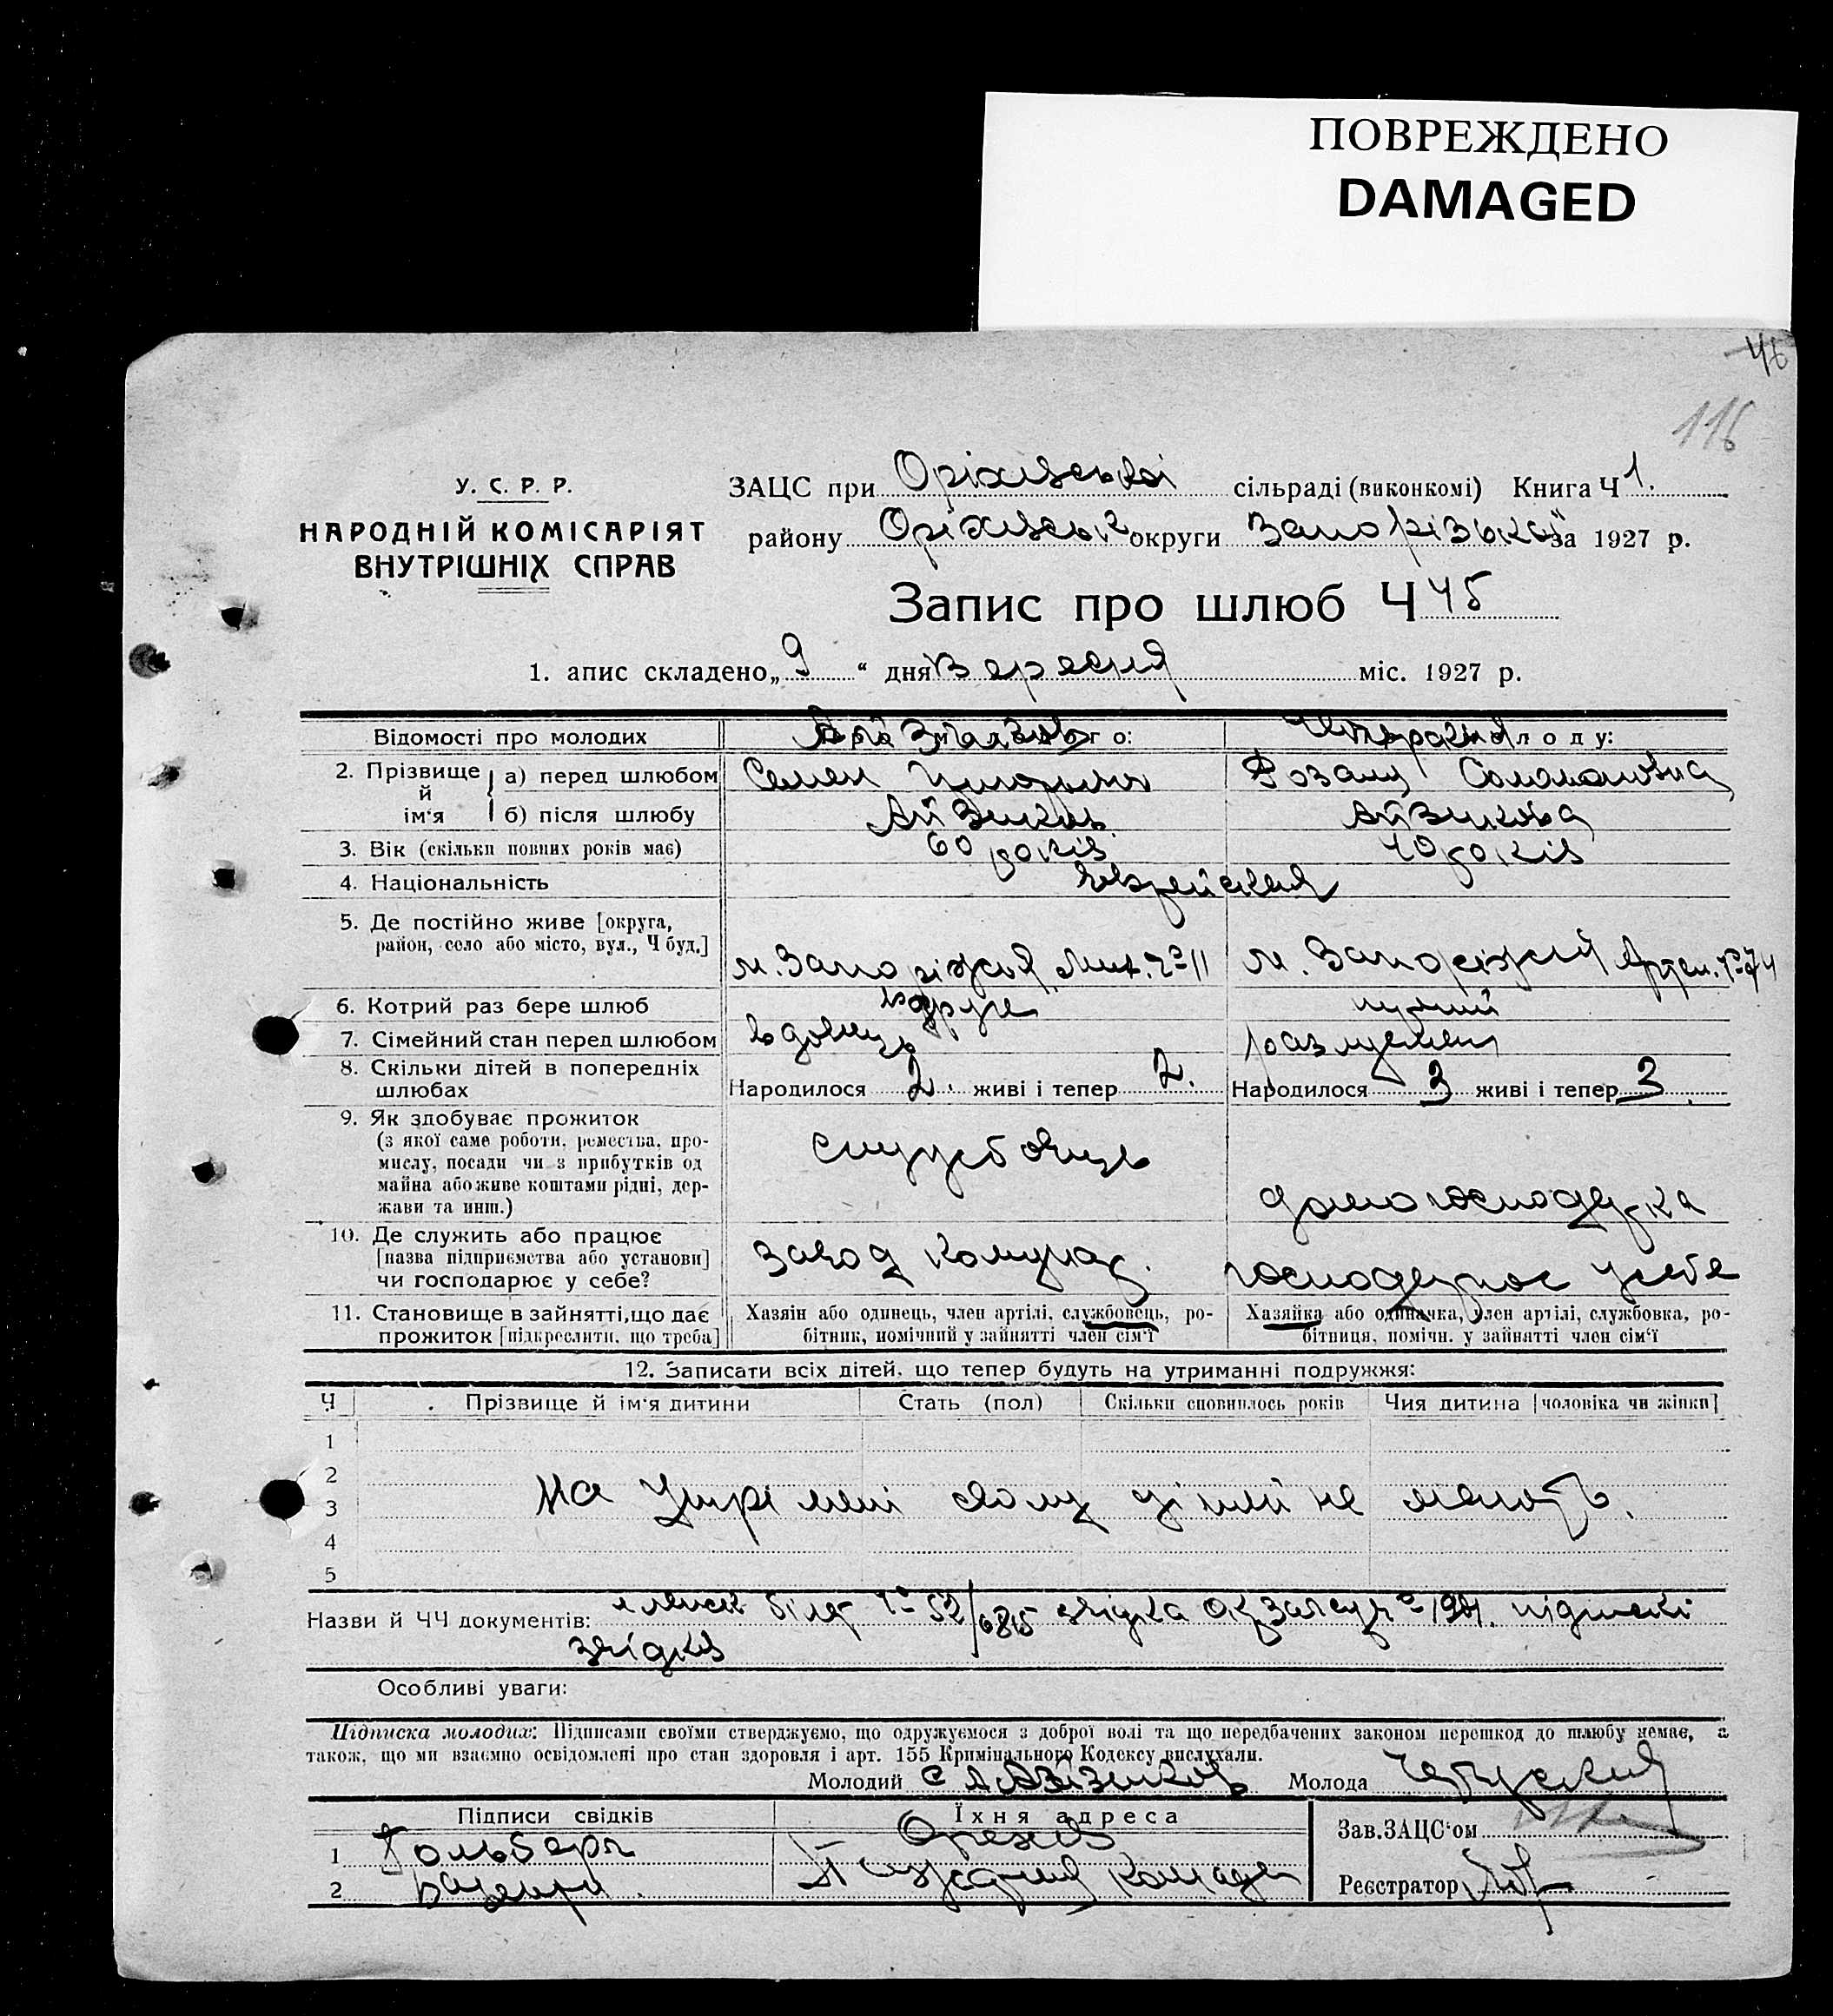 ПОВРЕЖДЕНО
DAMAGED
46
116
У. С. Р. Р.
НАРОДНІЙ КОМІСАРІЯТ
ВНУТРІШНІХ СПРАВ
ЗАЦС при Оріхівській сільраді (виконкомі) Книга Ч 1.
району Оріхівськ округи Запорізька за 1927 р.
Запис про шлюб Ч 45
1. апис складено „ 9 “ дня вересня міс. 1927 р.
Відомості про молодих
го: лоду:
2. Прізвище й ім'я
а) перед шлюбом Семен Розалія Соломоновна
б) після шлюбу Айзиков Айзикова
3. Вік (скільки повних років має) 60 років 40 років
4. Національність Єврейская
5. Де постійно живе [округа,
район, село або місто, вул., Ч буд.] м. Запоріжжя 11 м. Запоріжжя Артем. 74
6. Котрий раз бере шлюб вдруге
7. Сімейний стан перед шлюбом вдовець
8. Скільки дітей в попередніх
шлюбах Народилося 2. живі і тепер 2. Народилося 3 живі і тепер 3
9. Як здобуває прожиток
(з якої саме роботи, ремества, про-
мислу, посади чи з прибутків од
майна або живе коштами рідні, дер-
жави та инш.)
службовець домогосподарка
10. Де служить або працює
[назва підприємства або установи]
чи господарює у себе?
завод Комунар. господарює у себе
11. Становище в зайнятті, що дає
прожиток [підкреслити, що треба]
Хазяїн або одинець, член артілі, службовець, ро-
бітник, помічний у зайнятті член сім'ї
Хазяйка або одиначка, член артілі, службовка, ро-
бітниця, помічн. у зайнятті член сім'ї
12. Записати всіх дітей, що тепер будуть на утриманні подружжя:
Ч Прізвище й ім'я дитини Стать (пол) Скільки сповнилось років Чия дитина [чоловіка чи жінки]
1
2
3
4
5
На утрімані свому дітей не мають.
Назви й ЧЧ документів: членськ білет 52/6815 звідка підпискі
звідка
Особливі уваги:
Підписка молодих: Підписами своїми стверджуємо, що одружуємося з доброї волі та що передбачених законом перешкод до шлюбу немає, а
також, що ми взаємно освідомлені про стан здоровля і арт. 155 Кримінального Кодексу вислухали.
Молодий Молода
Підписи свідків Їхня адреса
1 Гольберг Орехов
2
Зав. ЗАЦС'ом
Реєстратор